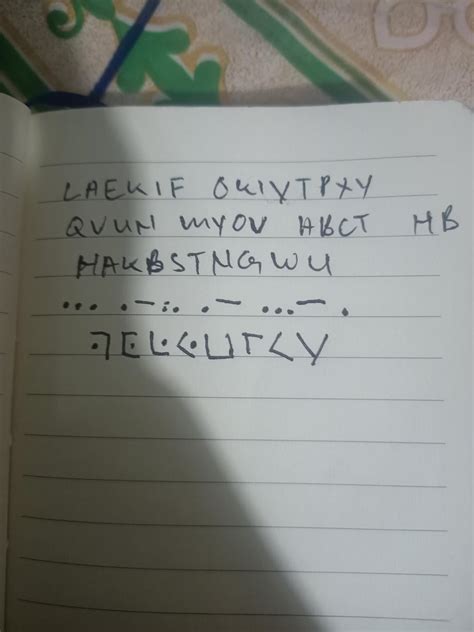 LAEKIF OKIYTPXY
QVUN WYOV ABCT HB
HAKBSTNGWU
... .-:. .- ...- .